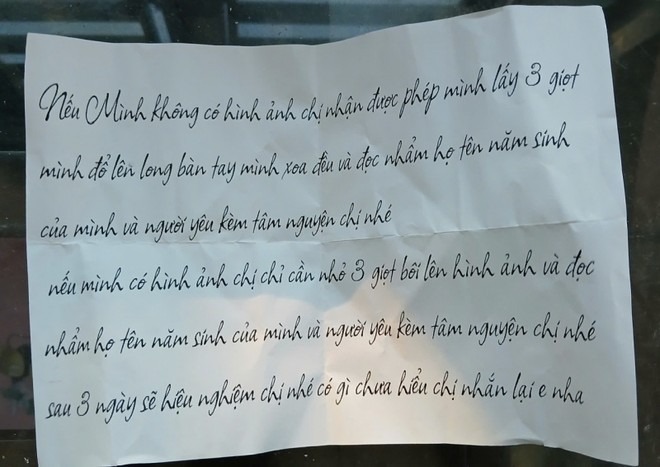 Nếu Mình không có hình ảnh chị nhận được phép mình lấy 3 giọt
mình đổ lên long bàn tay mình xoa đều và đọc nhẩm họ tên năm sinh
của mình và người yêu kèm tâm nguyện chị nhé
nếu mình có hình ảnh chị chỉ cần nhỏ 3 giọt bôi lên hình ảnh và đọc
nhẩm họ tên năm sinh của mình và người yêu kèm tâm nguyện chị nhé
sau 3 ngày sẽ hiệu nghiệm chị nhé có gì chưa hiểu chị nhắn lại e nha